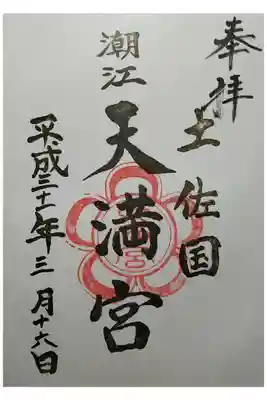 奉拝
土佐国
潮江
天満宮
平成三十一年三月十六日